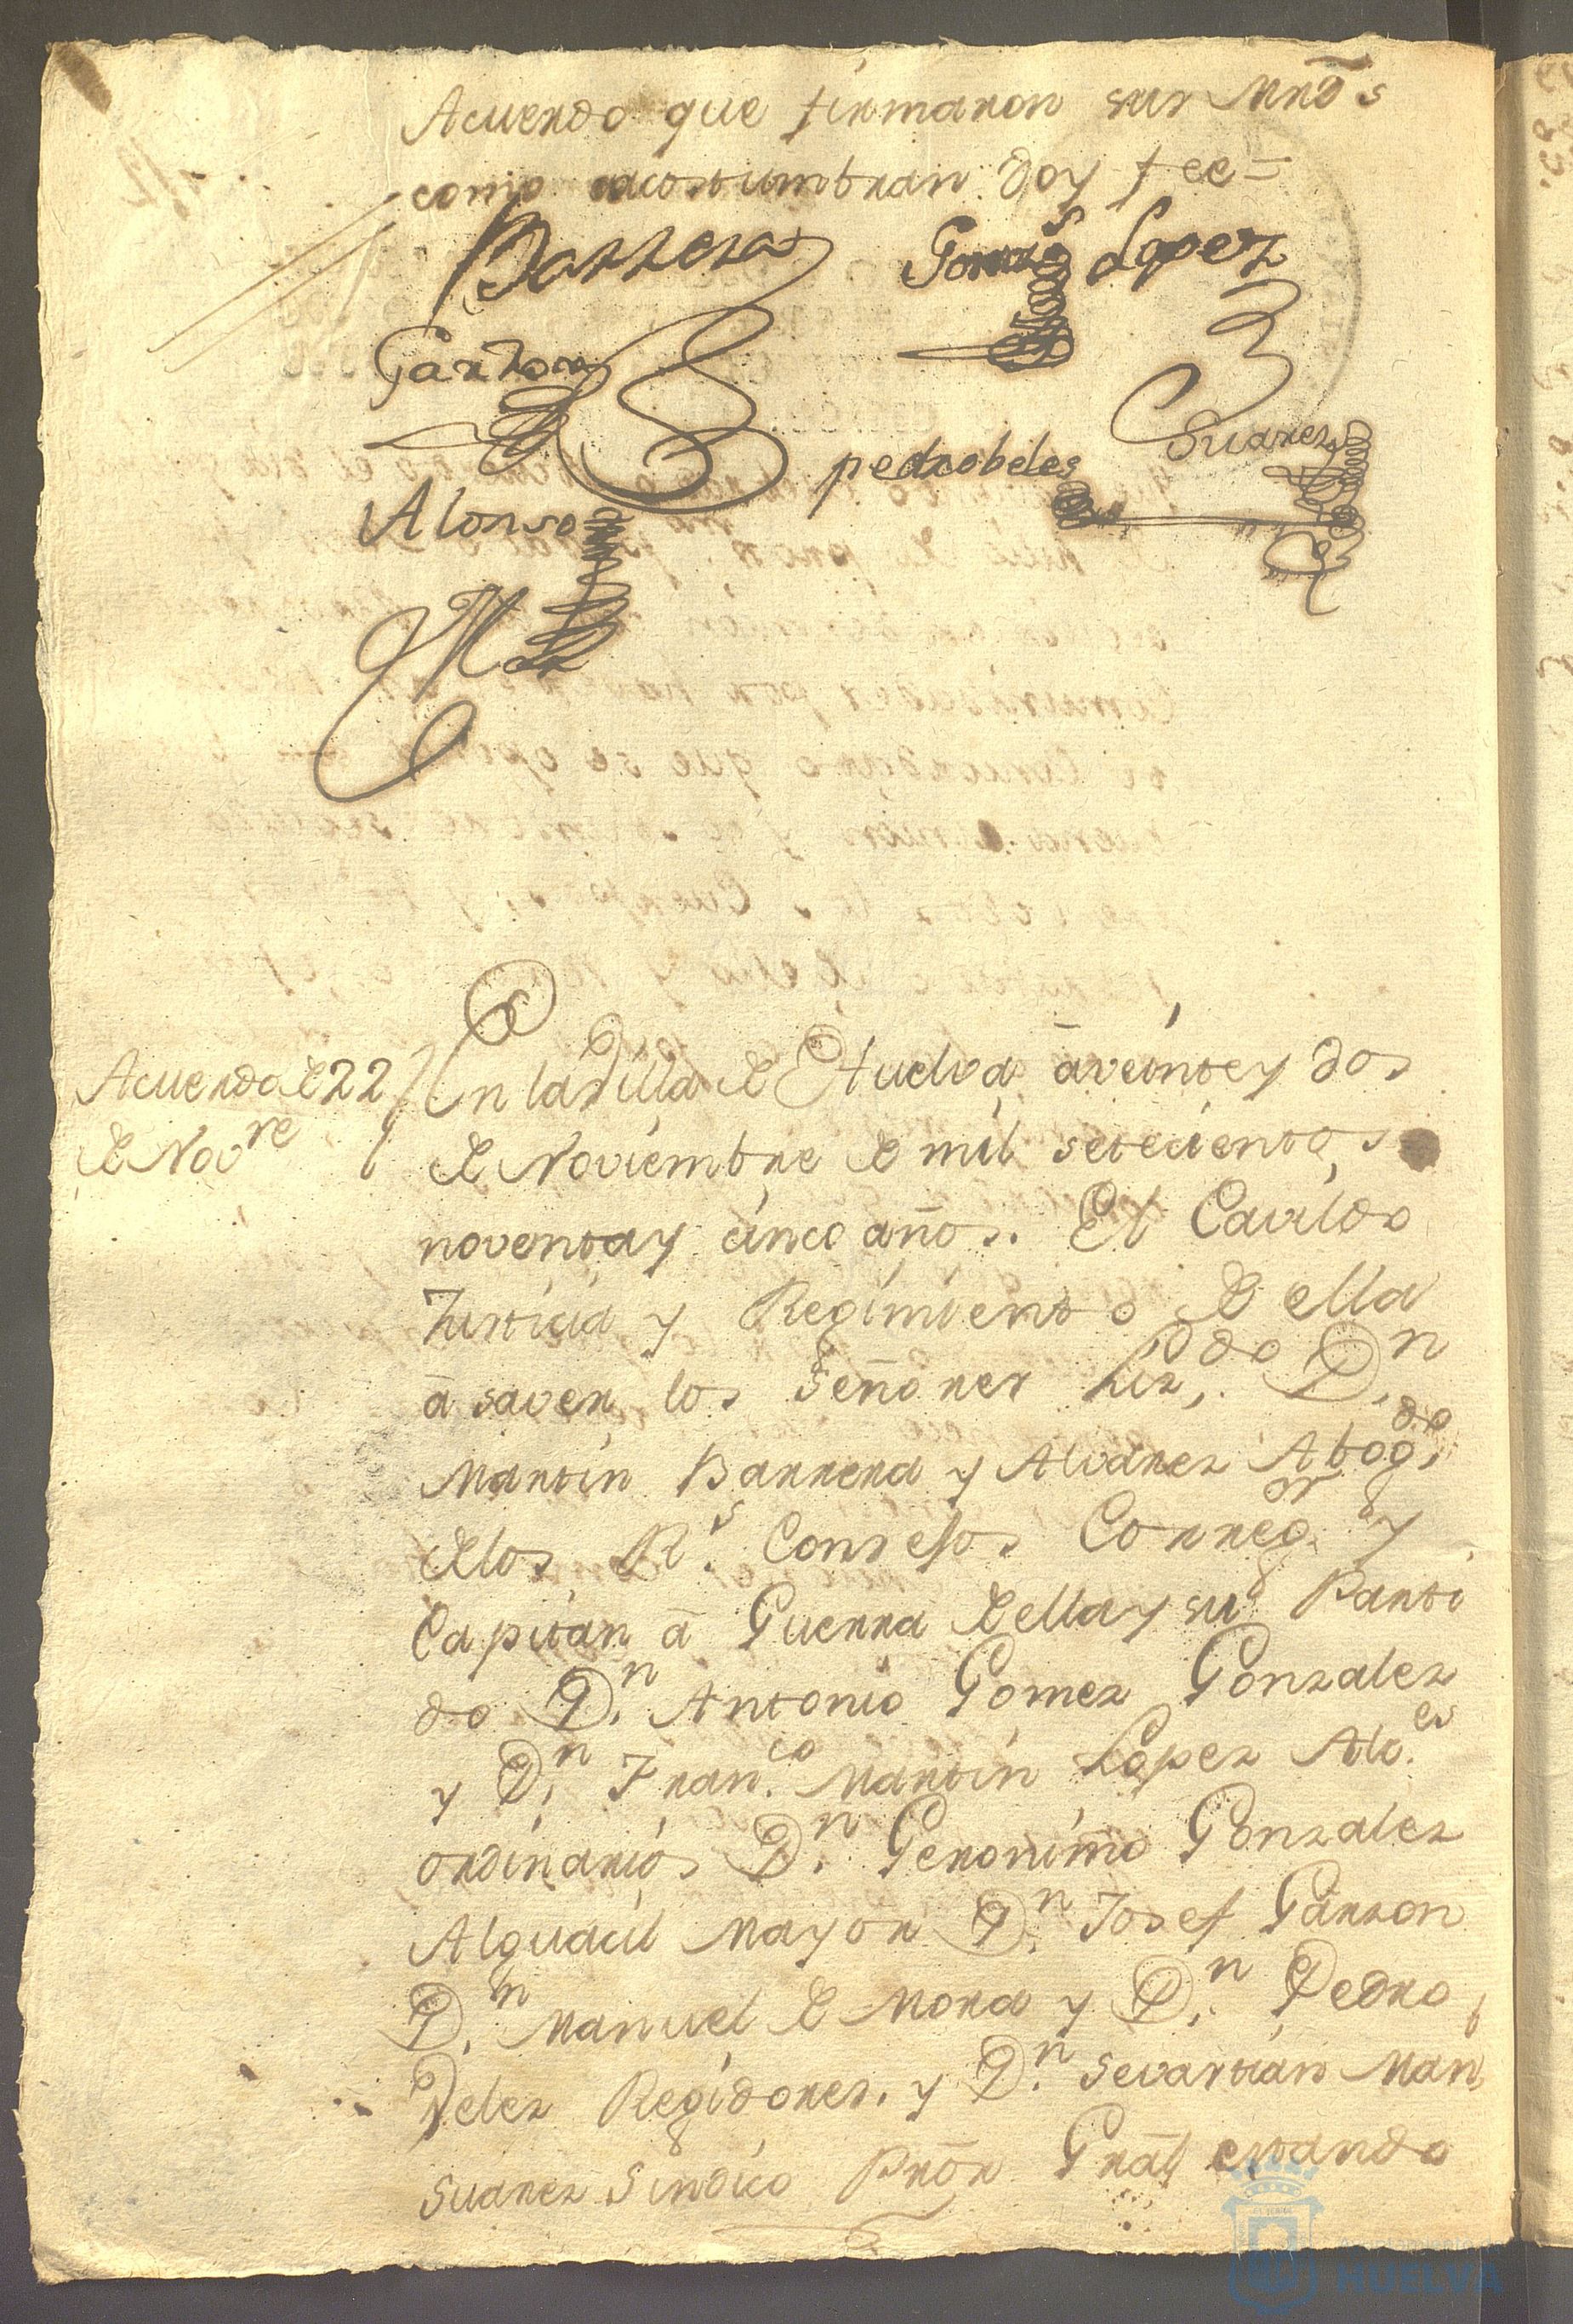 Acuerdo que firmaron sus Mrd̃s
como acostumbran doy fee=
Barrera
Gomez Lopez
Garzon
Suarez
pedro beles
Alonso
Acuerdo de 22
de Novre
En la Villa de Huelva, à veinte y dos
de Noviembre de mil setecientos
noventa y cinco años. El Cavildo
Justicia y Regimiento de ella
à saver los Señores Lizdo. Dn.
Martin Barrera y Alvarez Abogdo.
de los Rs. Consejos Corregor. y
Capitan à Guerra de ella y su Parti
do Dn. Antonio Gomez Gonzalez
y Dn. Franco. Martin Lopez Alces.
ordinarios Dn. Geronimo Gonzalez
Alguacil Mayor Dn. Josef Garzon
Dn. Manuel de Mora y Dn. Pedro
Velez Regidores. y Dn. Sevastian Mrn
Suarez Sindico Prõr Grãl estando
HUELVA